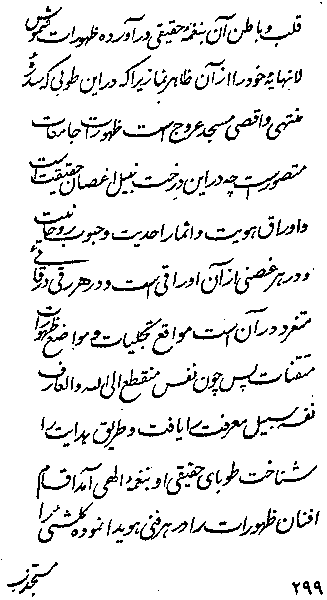 قلب و باطن آن بنغمهٔ حقیقی در آورده ظهورات
لانهایهٔ خود را از آن ظاهر نما زیرا که در این طوبی که سدرهٔ
منتهی و اقصی مسجد عروج است ظهورات جامعات
متصور است چه در این درخت نبیل اغصان حقیقت است
و اوراق هویت و اثمار احدیت و حبوب روحانیت
و در هر غصنی از آن اوراقی است و در هر رقی دقائق
متفرد در آن است مواقع تجلیات و مواضع ظهورات
متقنات پس چون نفس منقطع الی الله و العارف
نفسه سبیل معرفت را یافت و طریق هدایت را
شناخت طوبای حقیقی او بنغمهٔ الهی آمد اقدام
افنان ظهورات را در هر فنی هویدا نموده گلشنی را
۲۹۹